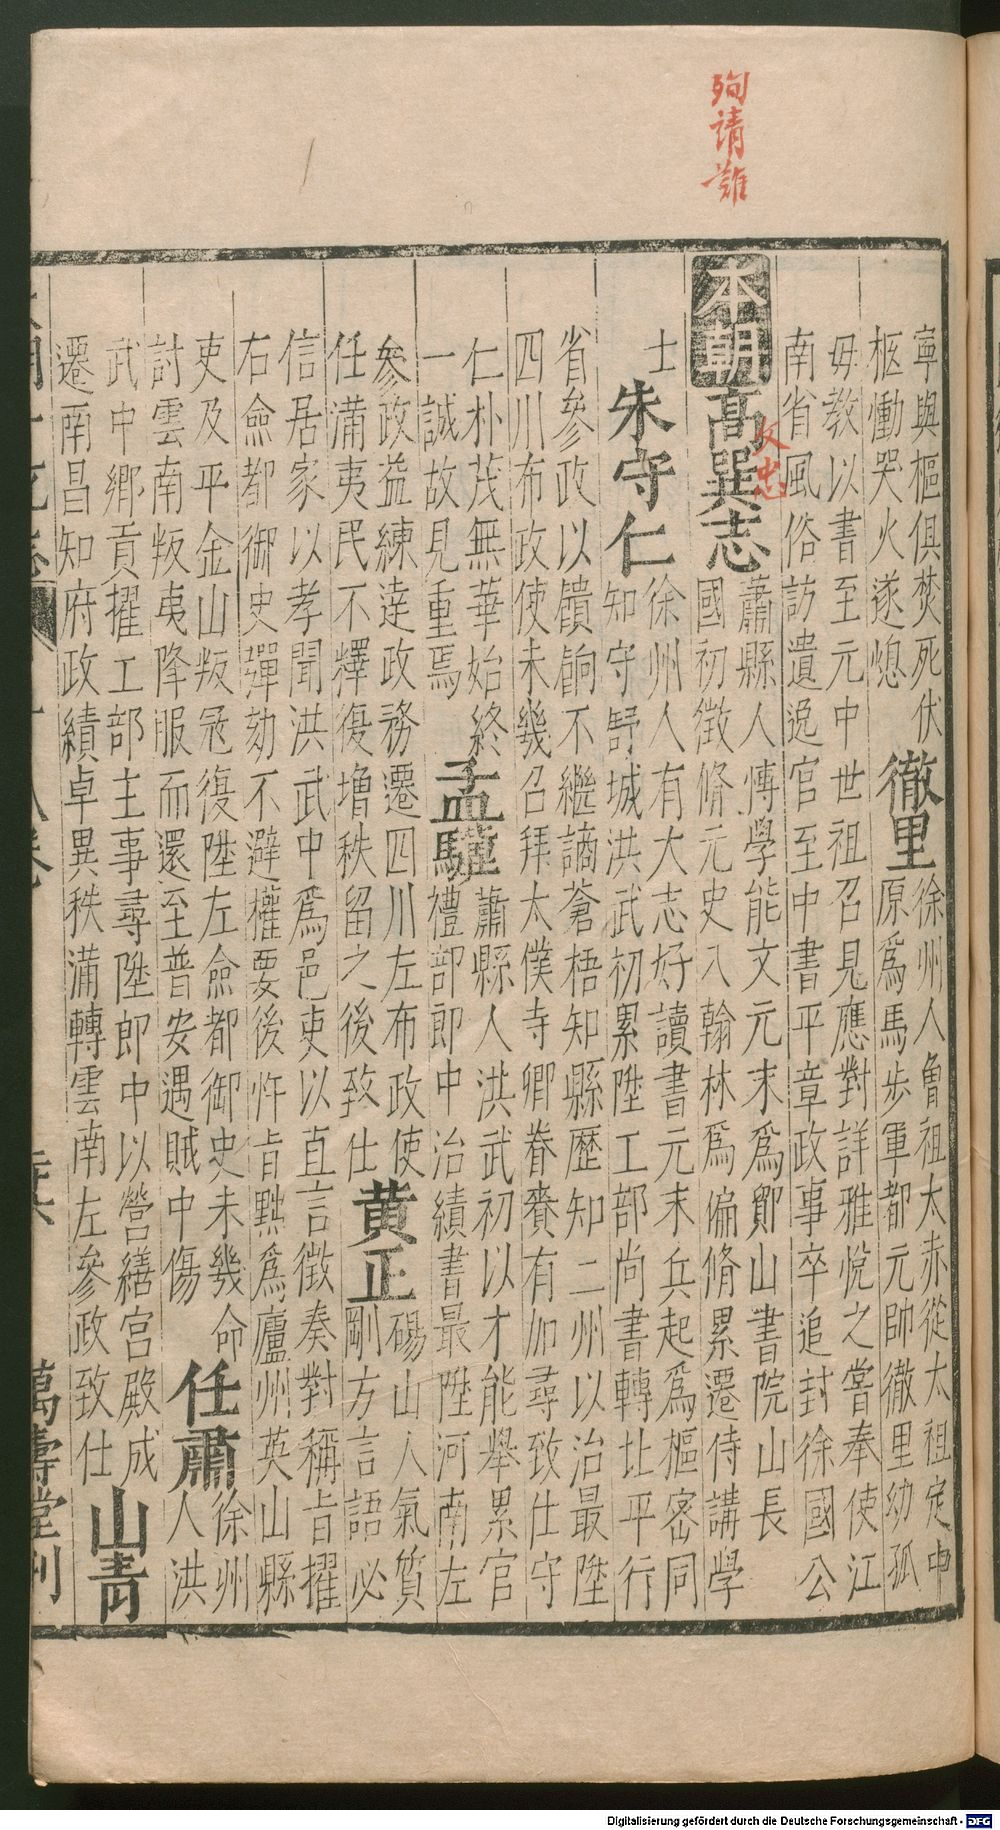 殉請難
寧與樞俱焚死伏
柩慟哭火遂熄
徹里
徐州人曾祖太赤從太祖定中
原爲馬步軍都元帥徹里幼孤
毋教以書至元中世祖召見應對詳雅悅之嘗奉使江
南省風俗訪遺逸官至中書平章政事卒追封徐國公
本朝
高巽志
文忠
蕭縣人慱學能文元末爲鄮山書院山長
國初徵脩元史入翰林爲偏脩累遷侍講學
士
朱守仁
徐州人有大志好讀書元末兵起爲樞密同
知守野城洪武初累陞工部尚書轉北平行
省參政以饋餉不繼謫蒼梧知縣歷知二州以治最陞
四川布政使未幾召拜太僕寺卿眷賚有加尋致仕守
仁朴茂無華始終
一誠故見重焉
孟驩
蕭縣人洪武初以才能舉累官
禮部郎中治績書最陞河南左
參政益練達政務遷四川左布政使
任蒲夷民不釋復增秩留之後致仕
黄正
碭山人氣質
剛方言語必
信居家以孝聞洪武中爲邑吏以直言徵奏對稱旨擢
右僉都御史彈劾不避權要後忤旨黜爲廬州英山縣
吏及平金山叛冦復陞左僉都御史未幾命
討雲南叛夷降服而還至普安遇賊中傷
任肅
徐州
人洪
武中鄉貢擢工部主事尋陞郎中以營繕宫殿成
遷南昌知府政績卓異秩蒲轉雲南左參政致仕
山青
萬壽堂刋
Digitalisierung gefördert durch die Deutsche Forschungsgemeinschaft - DFG